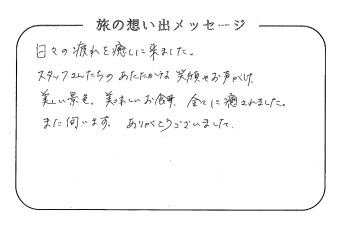 旅の想い出メッセージ
日々の疲れを癒しに来ました。
スタッフさんたちのあたたかな笑顔やお声がけ、
美しい景色、美味しいお食事、全てに癒されました。
また伺います。ありがとうございました。